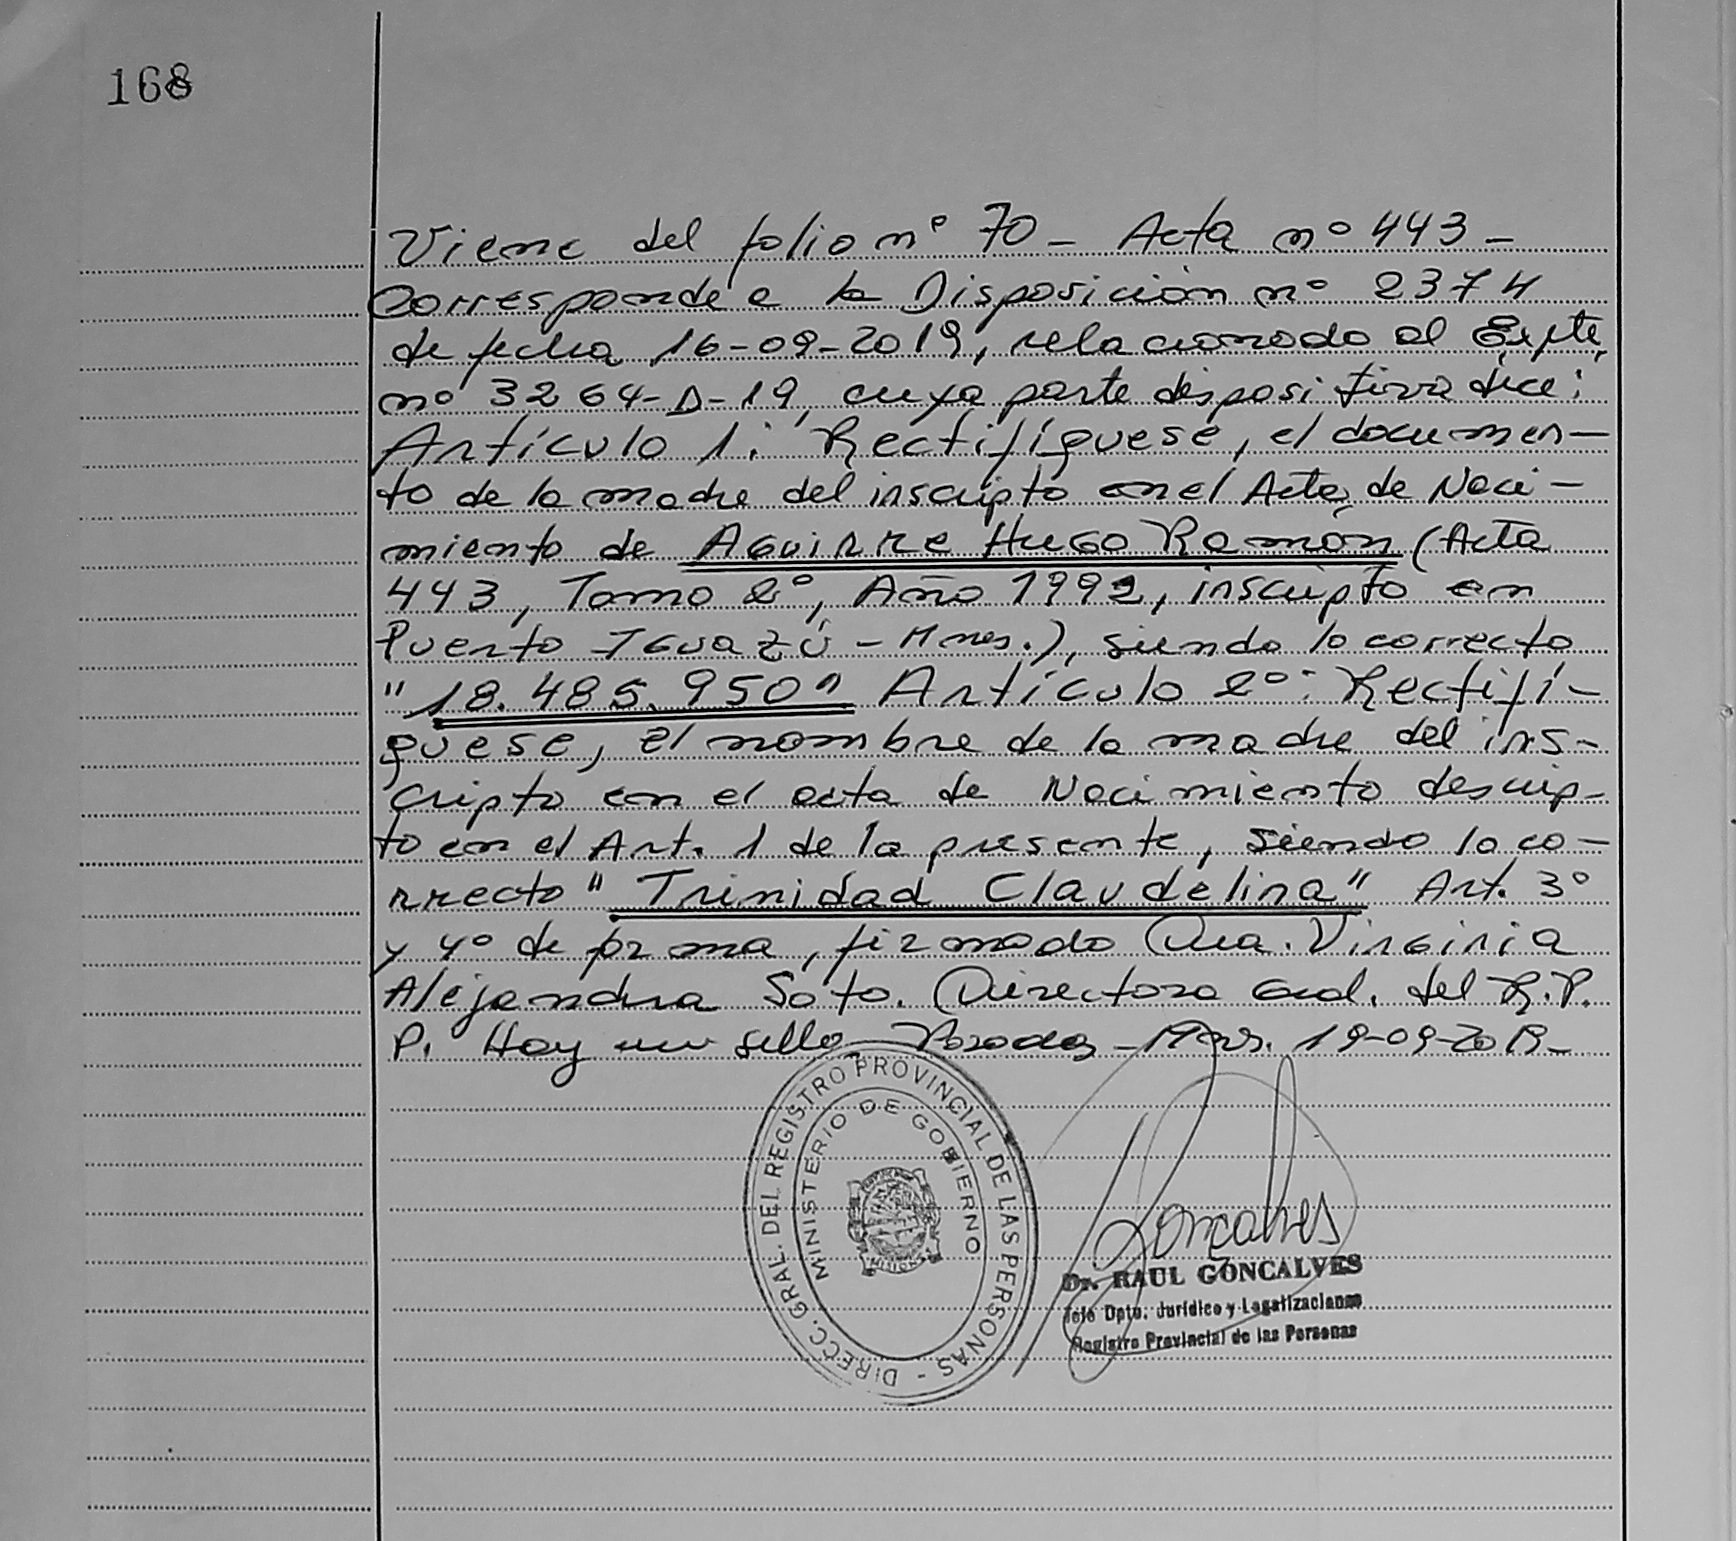 168
Viene del folio nº 70 - Acta nº 443 -
Corresponde a la Disposición nº 2374
de fecha 16-09-2019, relacionado al Expte,
nº 3264-D-19, cuya parte dispositiva dice:
Artículo 1: Rectifíquese, el documen-
to de la madre del inscripto en el Acta de Naci-
miento de Aguirre Hugo Ramón (Acta
443, Tomo 2º, Año 1992, inscripto en
Puerto Iguazú - Mnes.), siendo lo correcto
"18.485.950" Artículo 2º: Rectifí-
quese, el nombre de la madre del ins-
cripto en el acta de Nacimiento descrip-
to en el Art. 1 de la presente, siendo lo co-
rrecto "Trinidad Claudelina" Art. 3º
y 4º de forma, firmado Dra. Virginia
Alejandra Soto. Directora Gral. del R.P.
P. Hay un sello Posadas - Mnes. 19-09-2019-
DIRECC. GRAL. DEL REGISTRO PROVINCIAL DE LAS PERSONAS -
MINISTERIO DE GOBIERNO
MISIONES
Goncalves
Dr. RAUL GONCALVES
Jefe Dpto. Jurídico y Legalizaciones
Registro Provincial de las Personas